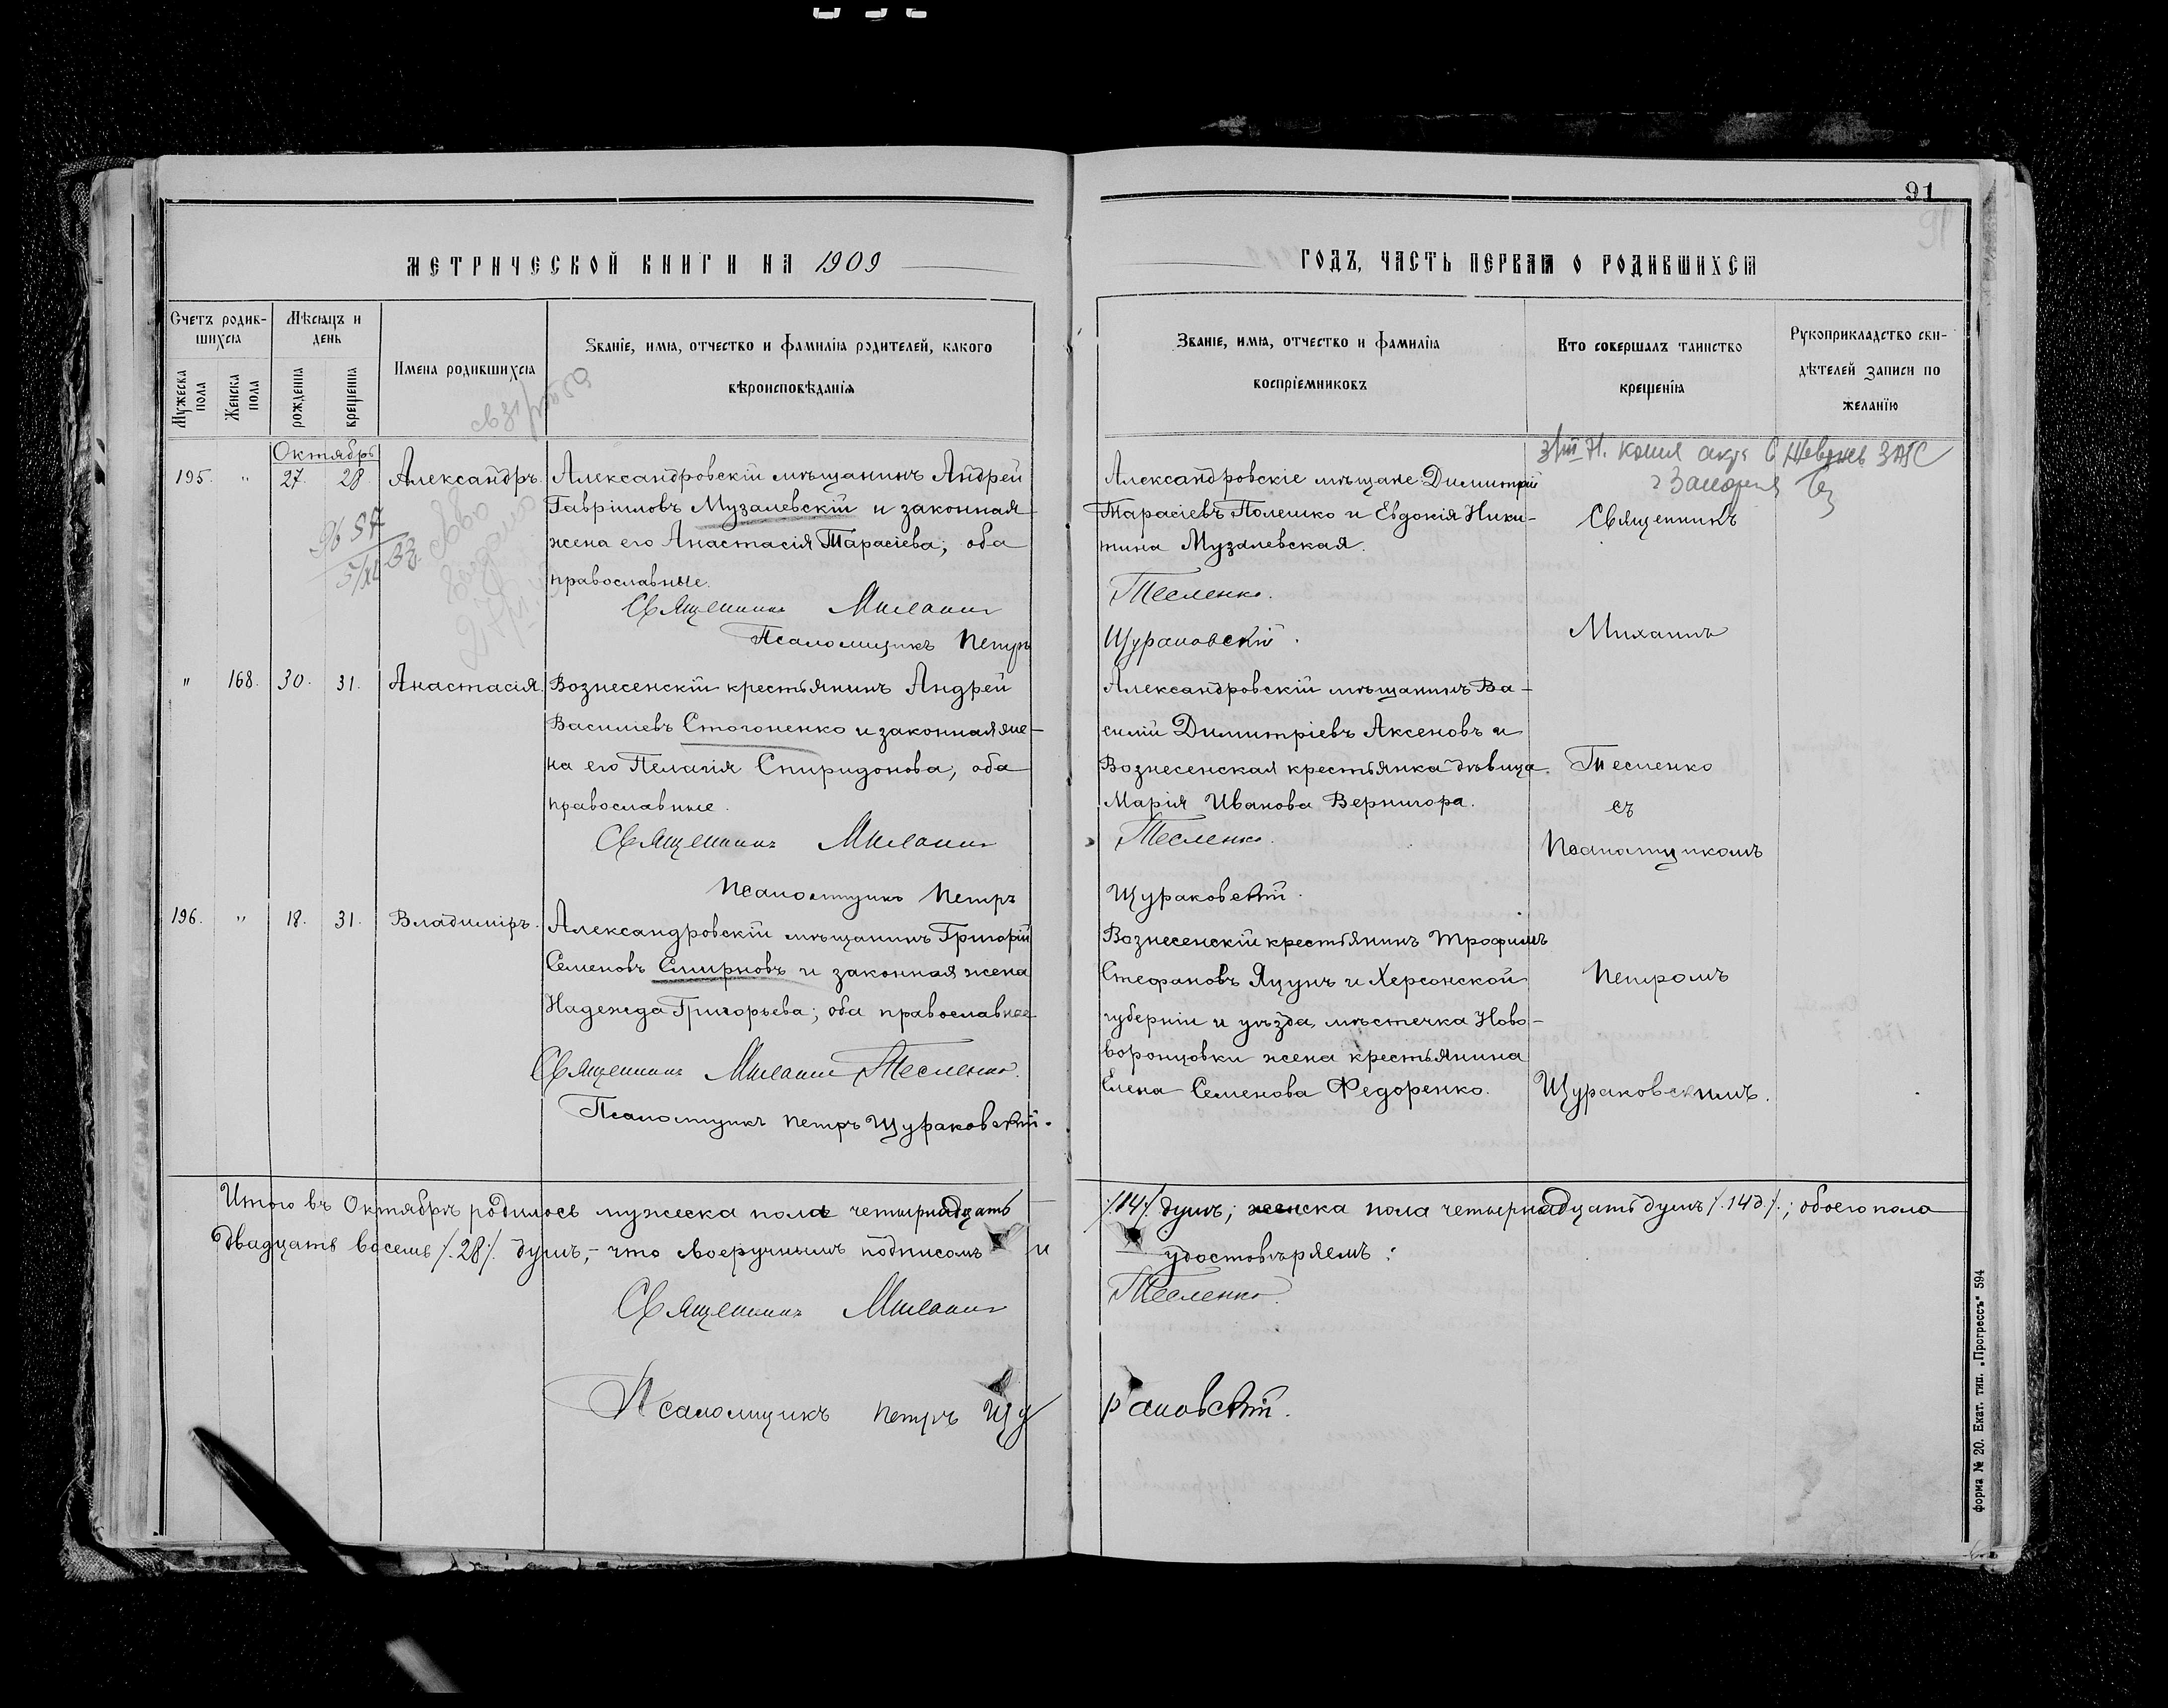 91
МЕТРИЧЕСКОЙ КНИГИ НА 1909
ГОДЪ, ЧАСТЬ ПЕРВАЯ О РОДИВШИХСЯ
Счетъ родив-
шихся
Мужеска пола
Женска пола
Мѣсяцъ и
день
рожденія
крещенія
Имена родившихся
Званіе, имя, отчество и фамилія родителей, какого
вѣроисповѣданія
Званіе, имя, отчество и фамилія
воспріемниковъ
Кто совершалъ таинство
крещенія
Рукоприкладство сви-
дѣтелей записи по
желанію
Октябрь
195. " 27. 28. Александръ.
Александровскій мѣщанинъ Андрей
Гавріиловъ Музалевскій и законная
жена его Анастасія Тарасіева; оба
православные.
Священникъ Михаилъ
Псаломщикъ Петръ
Александровскіе мѣщане: Димитрій
Тарасіевъ Полешко и Евдокія Ники-
тина Музалевская.
Тесленко.
Щураковскій.
" 168. 30. 31. Анастасія.
Вознесенскій крестьянинъ Андрей
Василіевъ Стогоненко и законная же-
на его Пелагія Спиридонова; оба
православные.
Священникъ Михаилъ
Псаломщикъ Петръ
Александровскій мѣщанинъ Ва-
силій Димитріевъ Аксеновъ и
Вознесенская крестьянка дѣвица
Марія Иванова Вернигора.
Тесленко.
Щураковскій.
196. " 18. 31. Владиміръ.
Александровскій мѣщанинъ Григорій
Семеновъ Смирновъ и законная жена
Надежда Григорьева; оба православные
Священникъ Михаилъ Тесленко.
Псаломщикъ Петръ Щураковскій.
Вознесенскій крестьянинъ Трофимъ
Стефановъ Яцунъ и Херсонской
губерніи и уѣзда, мѣстечка Ново-
воронцовки жена крестьянина
Елена Семенова Федоренко.
копия ЗАГС
Священникъ
Михаилъ
Тесленко
съ
Псаломщикомъ
Петромъ
Щураковскимъ.
Итого въ Октябрѣ родилось мужеска пола четырнадцать /.14./ душъ; женска пола четырнадцать душъ /.14д./.; обоего пола
двадцать восемь /.28./. душъ, – что своеручнымъ подписомъ и удостовѣряемъ:
Священникъ Михаилъ Тесленко.
Псаломщикъ Петръ Щураковскій.
форма № 20. Екат. тип. „Прогрессъ" 594